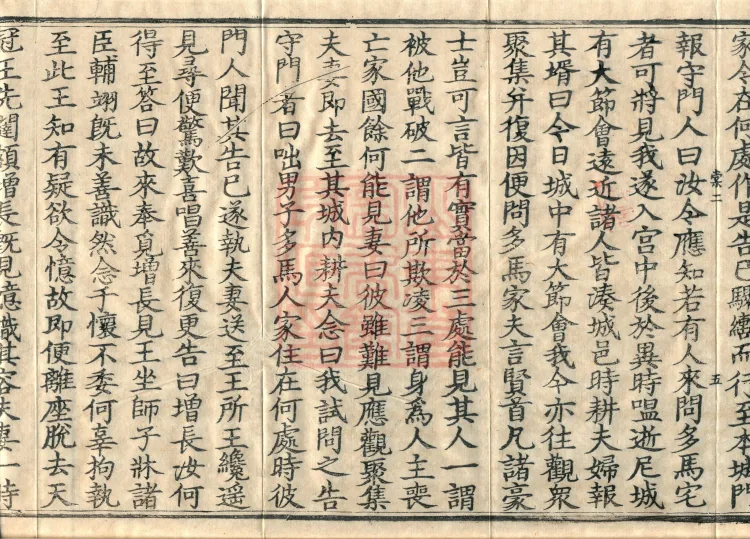 家今在何處作是告已驅𩦺而行至本城門
報守門人曰汝今應知若有人來問多馬宅
者可將見我遂入宮中後於異時嗢逝尼城
有大節會遠近諸人皆湊城邑時耕夫婦報
其壻曰今日城中有大節會我今亦往觀衆
聚集幷復因便問多馬家夫言賢首凡諸豪
棠二 五
士豈可言皆有實當於三處能見其人一謂
被他戰破二謂他所欺凌三謂身爲人主喪
亡家國餘何能見妻曰彼雖難見應觀聚集
夫妻即去至其城内耕夫念曰我試問之告
守門者曰咄男子多馬人家住在何處時彼
門人聞其告已遂執夫妻送至王所王纔遥
見尋便驚歎喜唱善來復更告曰增長汝何
得至荅曰故來奉覔增長見王坐師子牀諸
臣輔翊旣未善識然念于懷不委何辜拘執
至此王知有疑欲令憶故即便離座脫去天
冠王先闊額增長旣見憶識其容夫妻一時